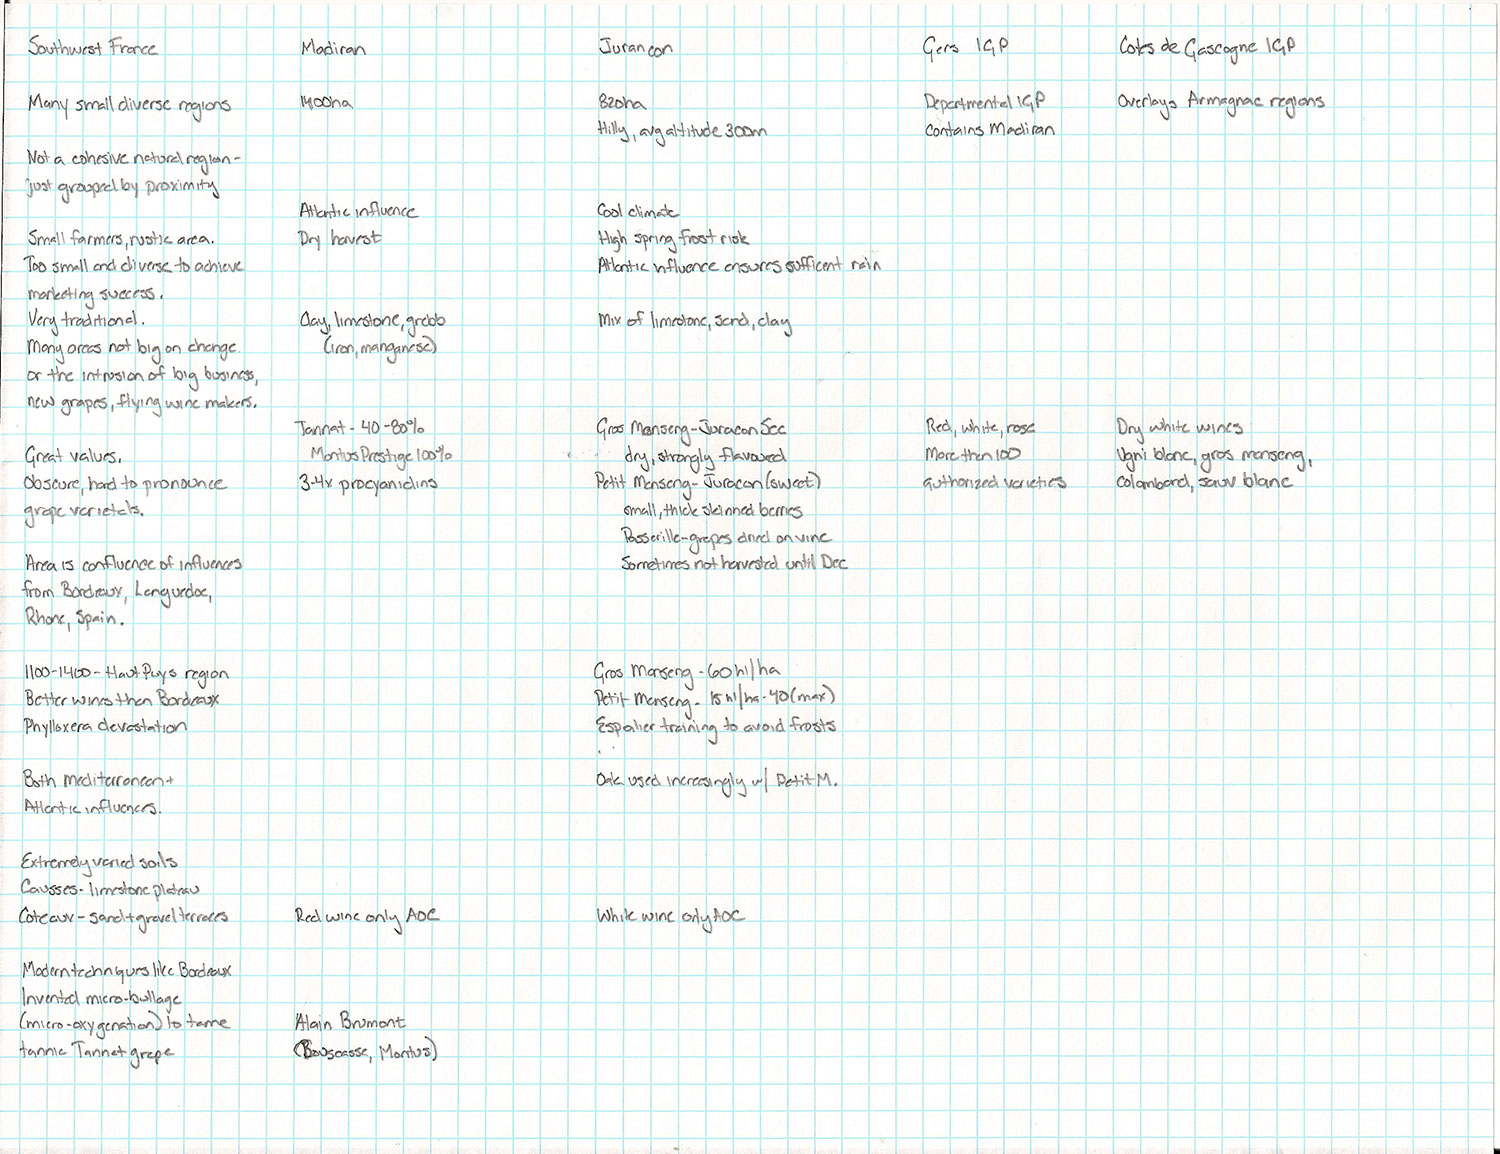 Southwest France
Many small diverse regions
Not a cohesive natural region -
just grouped by proximity
Small farmers, rustic area.
Too small and diverse to achieve
marketing success.
Very traditional.
Many areas not big on change
or the intrusion of big business,
new grapes, flying wine makers.
Great values.
Obscure, hard to pronounce
grape varietals.
Area is confluence of influences
from Bordeaux, Languedoc,
Rhone, Spain.
1100-1400 - Haut Pays region
Better wines then Bordeaux
Phylloxera devastation
Both mediterranean +
Atlantic influences.
Extremely varied soils
Causses - limestone plateau
Coteaux - sand + gravel terraces
Modern techniques like Bordeaux
Invented micro-bullage
(micro-oxygenation) to tame
tannic Tannat grape
Madiran
1400ha
Atlantic influence
Dry harvest
Clay, limestone, grebb
(iron, manganese)
Tannat - 40-80%
Montus Prestige 100%
3-4x procyanidins
Red wine only AOC
Alain Brumont
(Bouscasse, Montus)
Jurancon
820ha
Hilly, avg altitude 300m
Cool climate
High spring frost risk
Atlantic influence ensures sufficent rain
Mix of limestone, sand, clay
Gros Manseng - Juracon Sec
dry, strongly flavoured
Petit Manseng - Juracon (sweet)
small, thick skinned berries
Passerille - grapes dried on vine
Sometimes not harvested until Dec
Gros Manseng - 60 hl/ha
Petit Manseng - 15 hl/ha - 40 (max)
Espalier training to avoid frosts
Oak used increasingly w/ Petit M.
White wine only AOC
Gers IGP
Departmental IGP
Contains Madiran
Red, white, rose
More then 100
authorized varieties
Cotes de Gascogne IGP
Overlays Armagnac regions
Dry white wines
Ugni blanc, gros manseng,
Colombard, sauv blanc